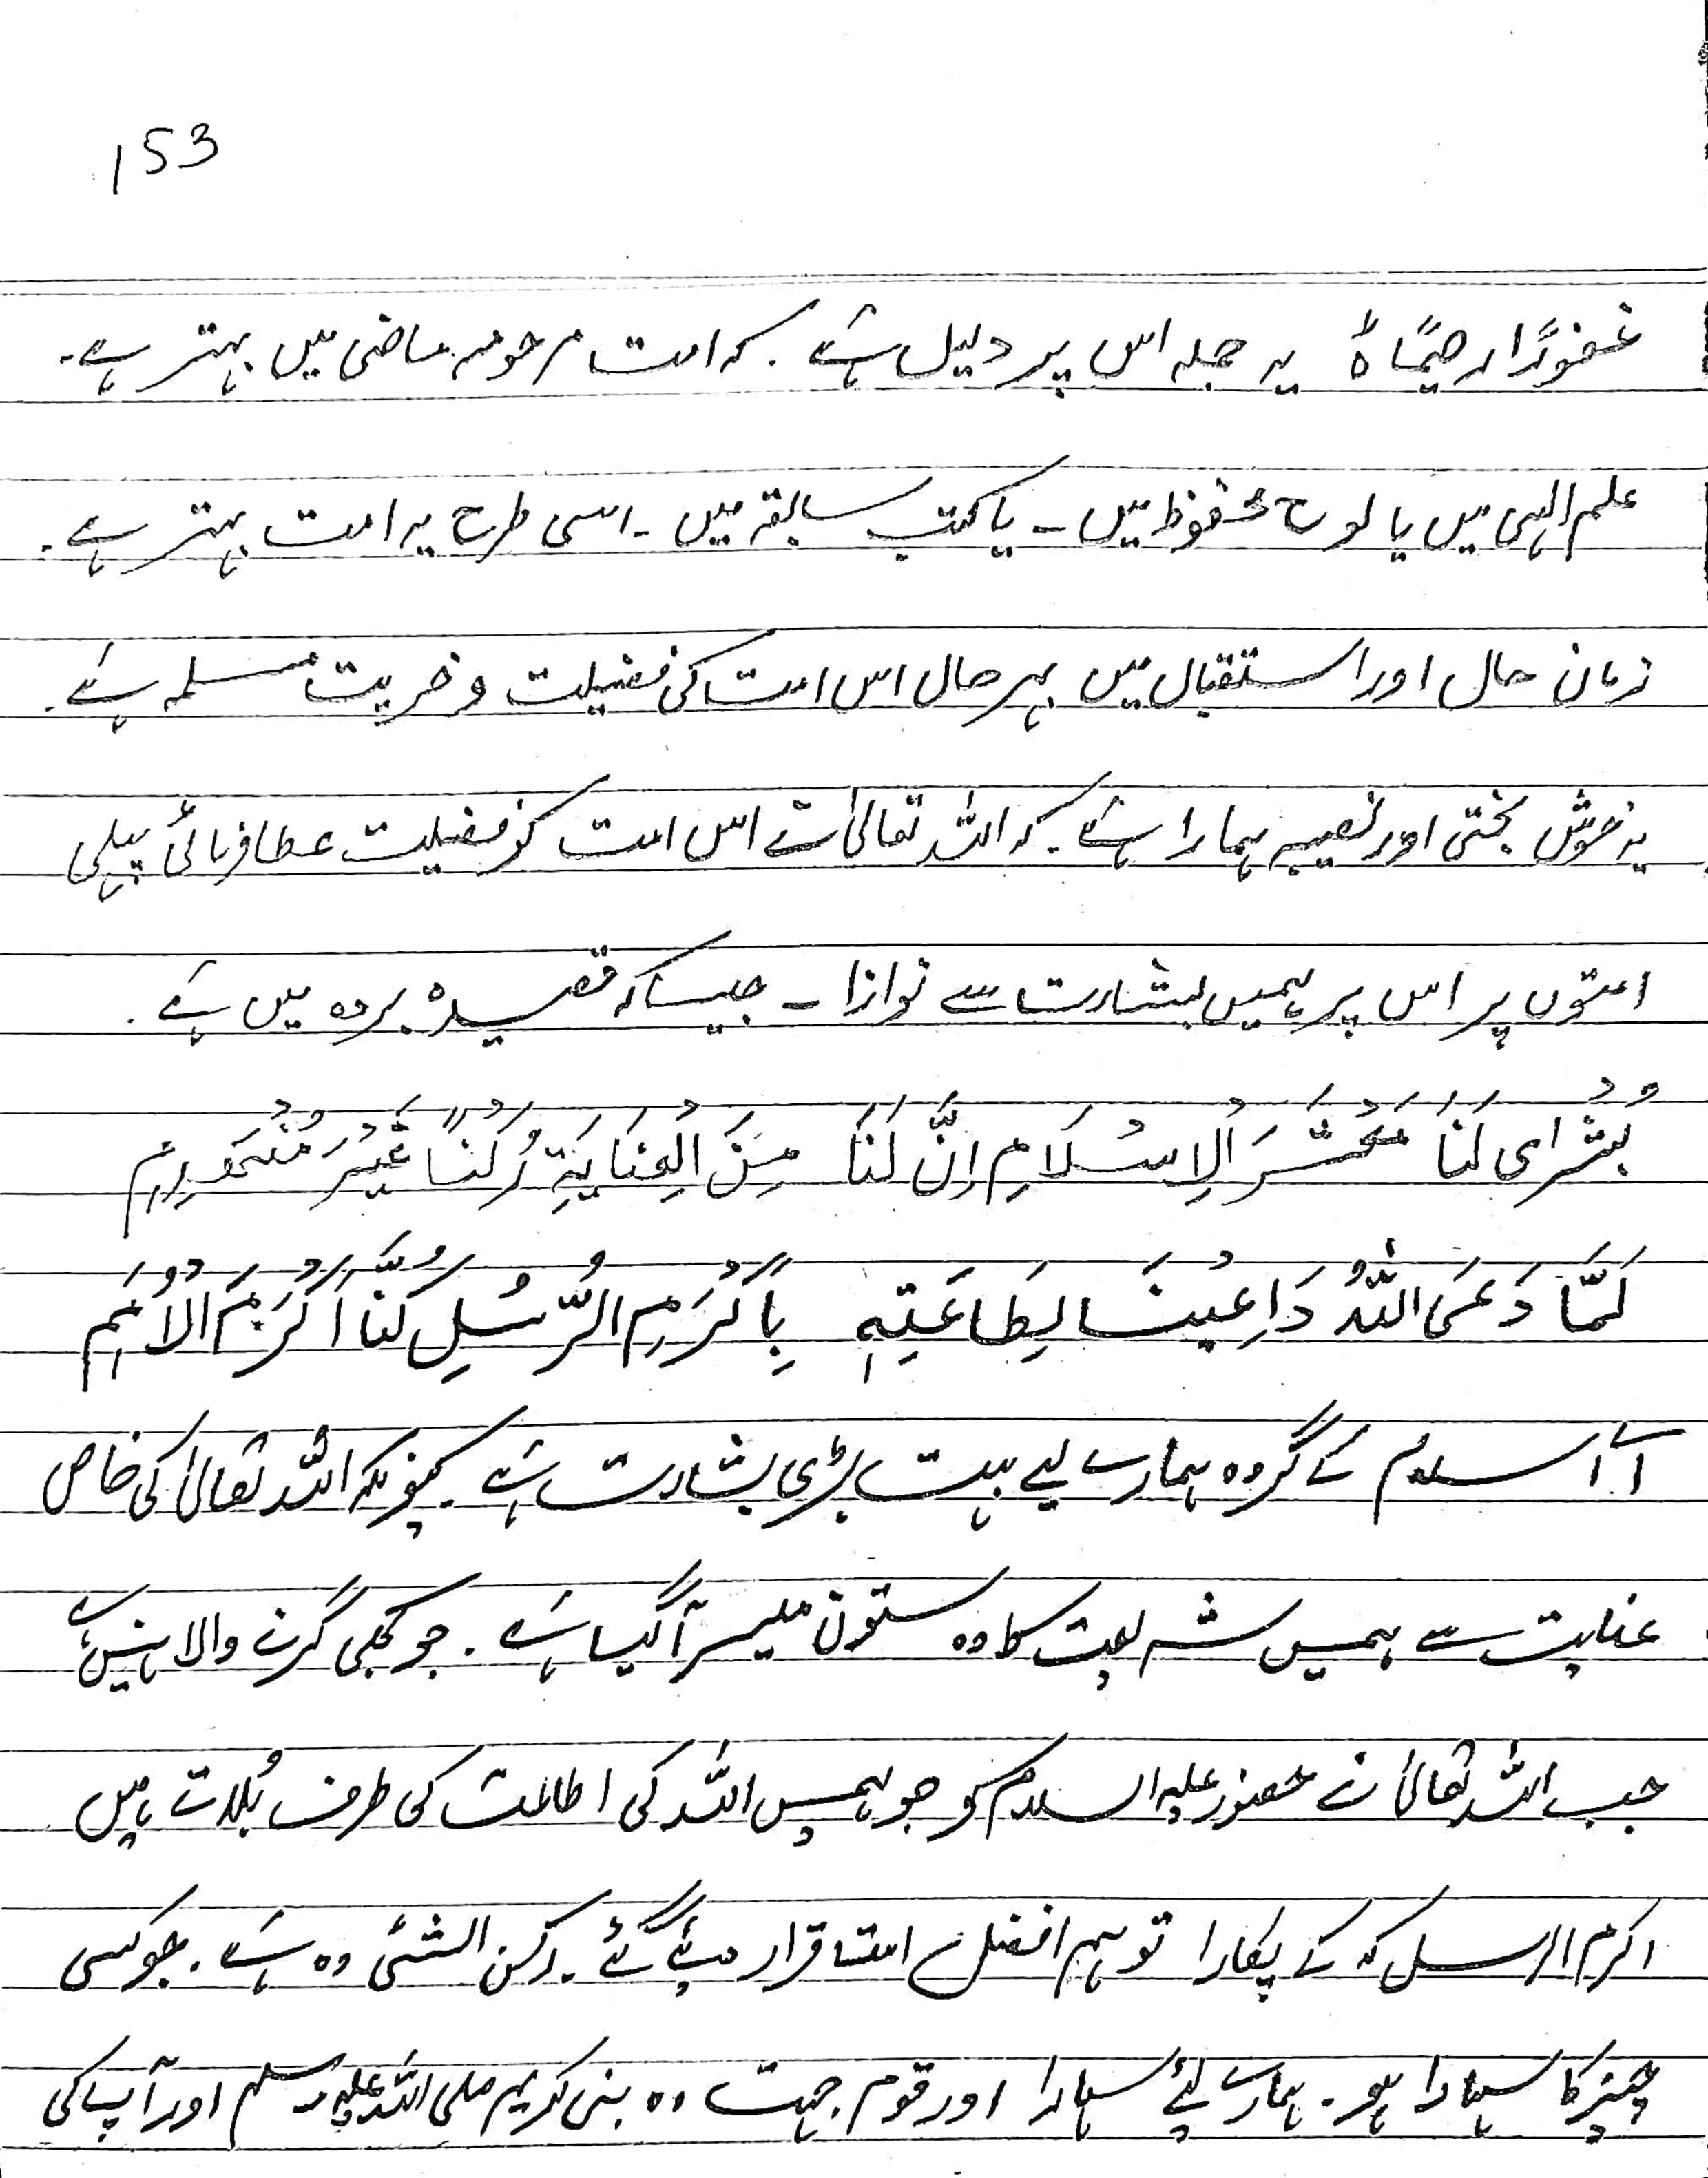 153
غفورًا رحیمًا ہ یہ جملہ اس پر دلیل ہے ۔ کہ امت مرحومہ ماضی میں بہتر ہے ۔
علم الٰہی میں یا لوح محفوظ میں ۔ یا کتب سابقہ میں ۔ اسی طرح یہ امت بہتر ہے ۔
زمان حال اور استقبال میں بہر حال اس امت کی فضیلت و خریت مسلمہ ہے ۔
یہ خوش بختی اور نصیبہ ہمارا ہے ۔ کہ اللہ تعالیٰ نے اس امت کو فضیلت عطا فرمائی پہلی
امتوں پر اس پر ہمیں بشارت سے نوازا ۔ جیسا کہ قصیدہ بردہ میں ہے ۔
بُشْرَای لَنَا مَعْشَرَ الْاِسْلَامِ اِنَّ لَنَا مِنَ الْعِنَایَةِ رُکْنًا غَیْرَ مُنْهَدِمٖ
لَمَّا دَعَی اللّٰہُ دَاعِیْنَا لِطَاعَتِهٖ بِاَکْرَمِ الرُّسُلِ کُنَّا اَکْرَمَ الْاُمَمِ
اے اسلام کے گروہ ہمارے لیے بہت بڑی بشارت ہے ۔ کیونکہ اللہ تعالیٰ کی خاص
عنایت سے ہمیں شریعت کا وہ ستون میسر آگیا ہے ۔ جو کبھی گرنے والا نہیں ہے
جب اللہ تعالیٰ نے حضور علیہ السلام کو جو ہمیں اللہ کی اطاعت کی طرف بُلاتے ہیں
اکرم الرسل کہہ کے پکارا تو ہم افضل امت قرار دیے گئے ۔ رکن الشئی وہ ہے ۔ جو کسی
چیز کا سہارا ہو ۔ ہمارے لئے سہارا اور قوم جہت وہ نبی کریم صلی اللہ علیہ وسلم اور آپ کی